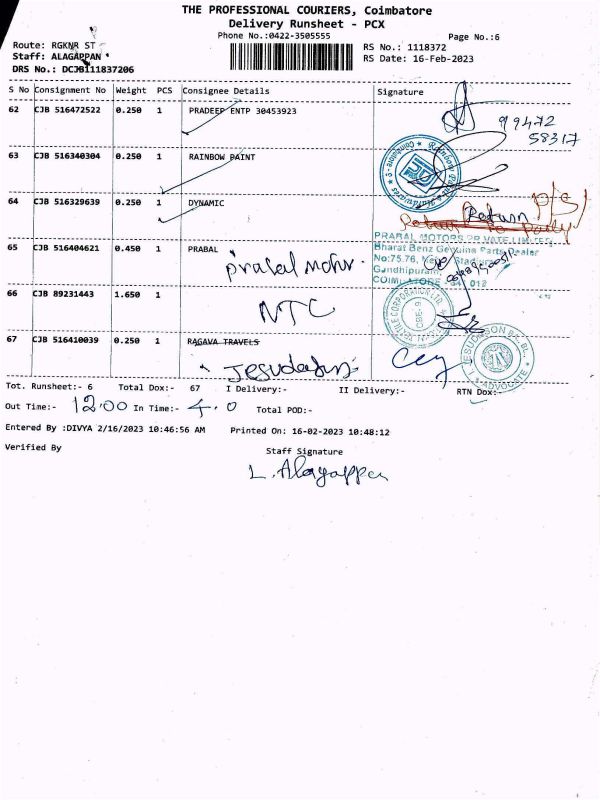 THE PROFESSIONAL COURIERS, Coimbatore
Delivery Runsheet - PCX
Phone No.:0422-3505555
Page No.:6
Route: RGKNR ST
RS No.: 1118372
Staff: ALAGAPPAN
RS Date: 16-Feb-2023
DRS No.: DCJB111837206
S No Consignment No Weight PCS Consignee Details Signature
62 CJB 516472522 0.250 1 PRADEEP ENTP 30453923
99472
58317
63 CJB 516340304 0.250 1 RAINBOW PAINT
64 CJB 516329639 0.250 1 DYNAMIC
Return
PRABAL MOTORS PRIVATE LIMITED
65 CJB 516404621 0.450 1 PRABAL
Bharat Benz Genuine Parts Dealer
No:75.76,
Gandhipuram,
prabal motor.
66 CJB 89231443 1.650 1
NTC
67 CJB 516410039 0.250 1 RAGAVA TRAVELS
Jesudasan
ADVOCATE
Tot. Runsheet:- 6 Total Dox:- 67 I Delivery:- II Delivery:- RTN Dox:-
Out Time:- 12.00 In Time:- 4.0 Total POD:-
Entered By :DIVYA 2/16/2023 10:46:56 AM Printed On: 16-02-2023 10:48:12
Verified By
Staff Signature
L. Alagappan